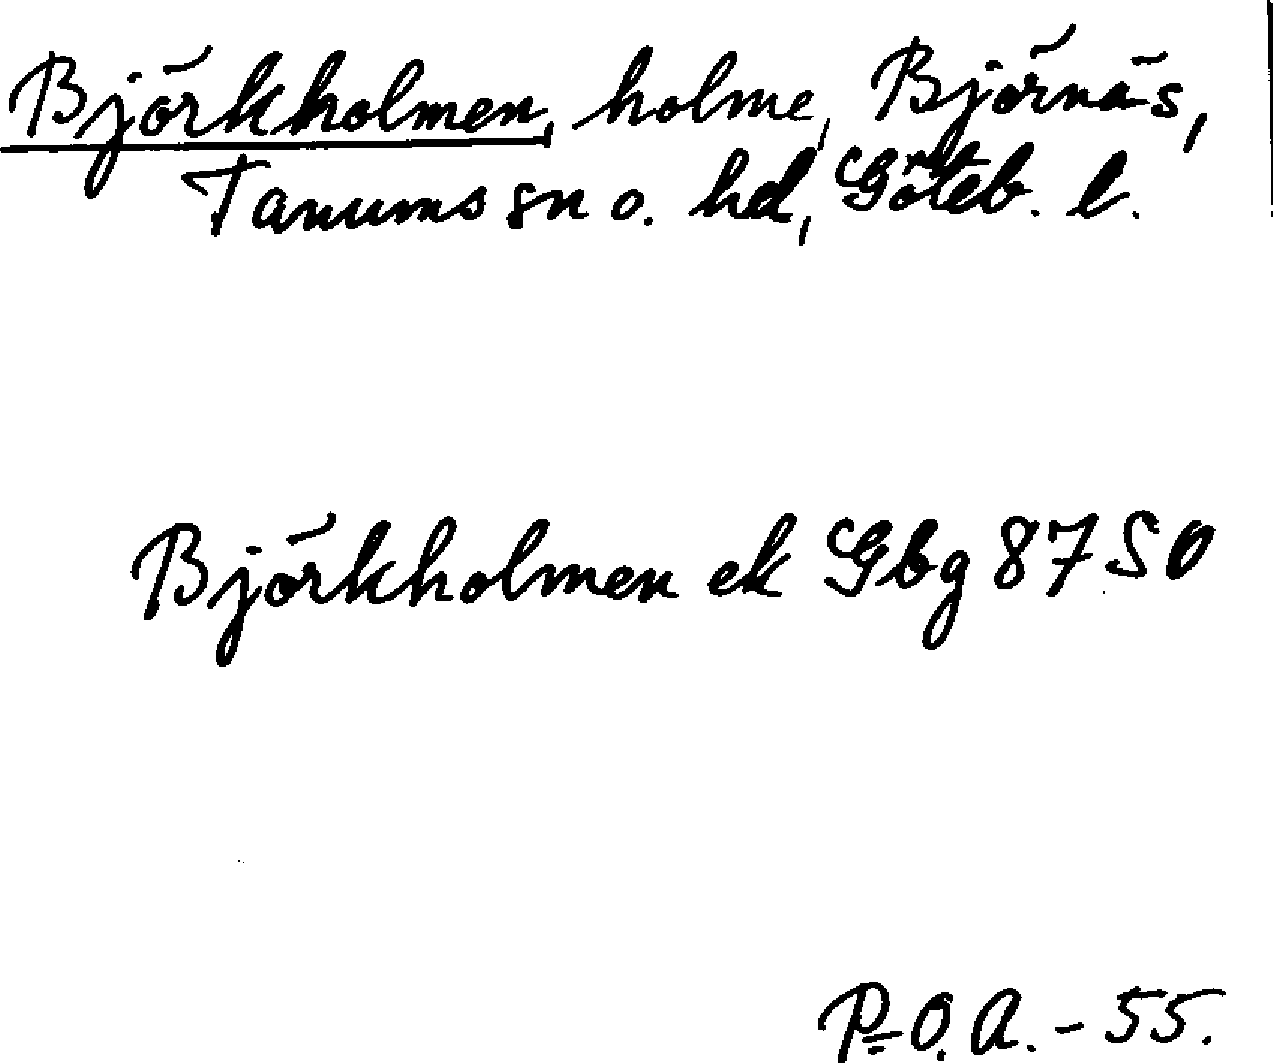 Björkholmen, holme, Björnäs,
Tanums sn o. hd, Göteb. l.
Björkholmen ek Gbg 87 SO
P-O. A. - 55.